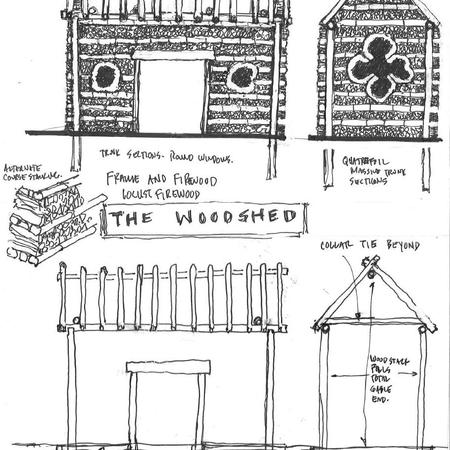 TRUNK SECTIONS. ROUND WINDOWS.
QUATREFOIL
MASSIVE TRUNK
SECTIONS
ALTERNATE
COURSE STACKING.
FRAME AND FIREWOOD
LOCUST FIREWOOD
THE WOODSHED
COLLAR TIE BEYOND
WOOD STACK
FILLS
TOTAL
GABLE
END.